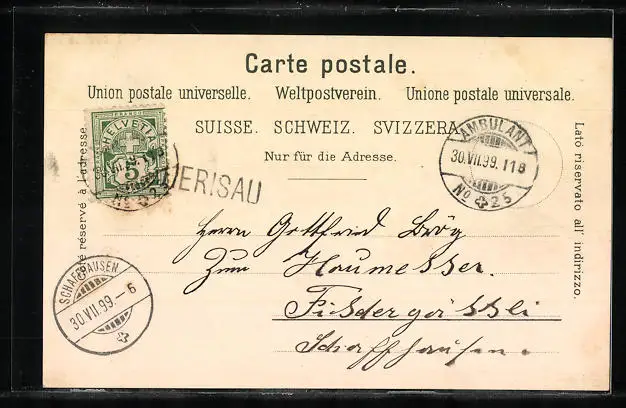 Carte postale.
Union postale universelle. Weltpostverein. Unione postale universale.
SUISSE. SCHWEIZ. SVIZZERA
Nur für die Adresse.
réservé à l'adresse.
Lato riservato all' indirizzo.
HELVETIA
5
HERISAU
AMBULANT
30.VII.99.118
No 25
SCHAFFHAUSEN
30.VII.99.-6
Herrn Gottfried
Zum Haumesser.
Schaffhausen.